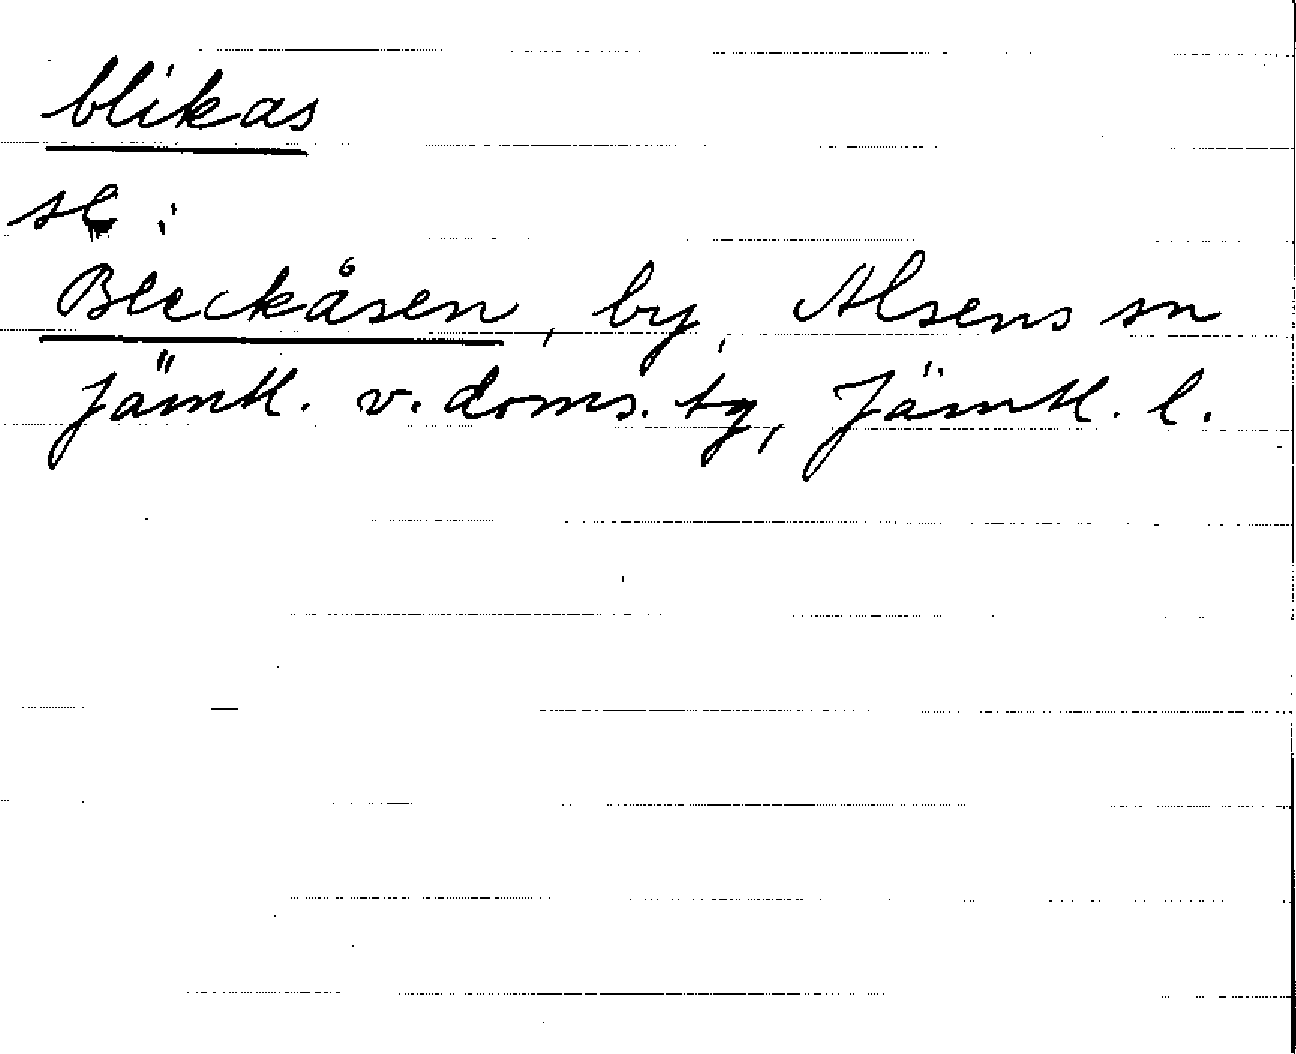 blikas
se :
Bleckåsen, by, Alsens sn
Jämtl. v. doms. tg, Jämtl. l.